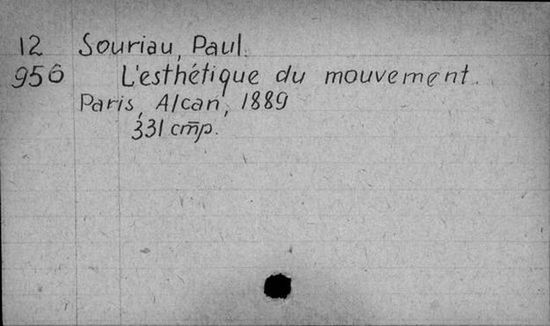 12 Souriau, Paul.
956 L'esthétique du mouvement.
Paris, Alcan, 1889
331 cm̄p.